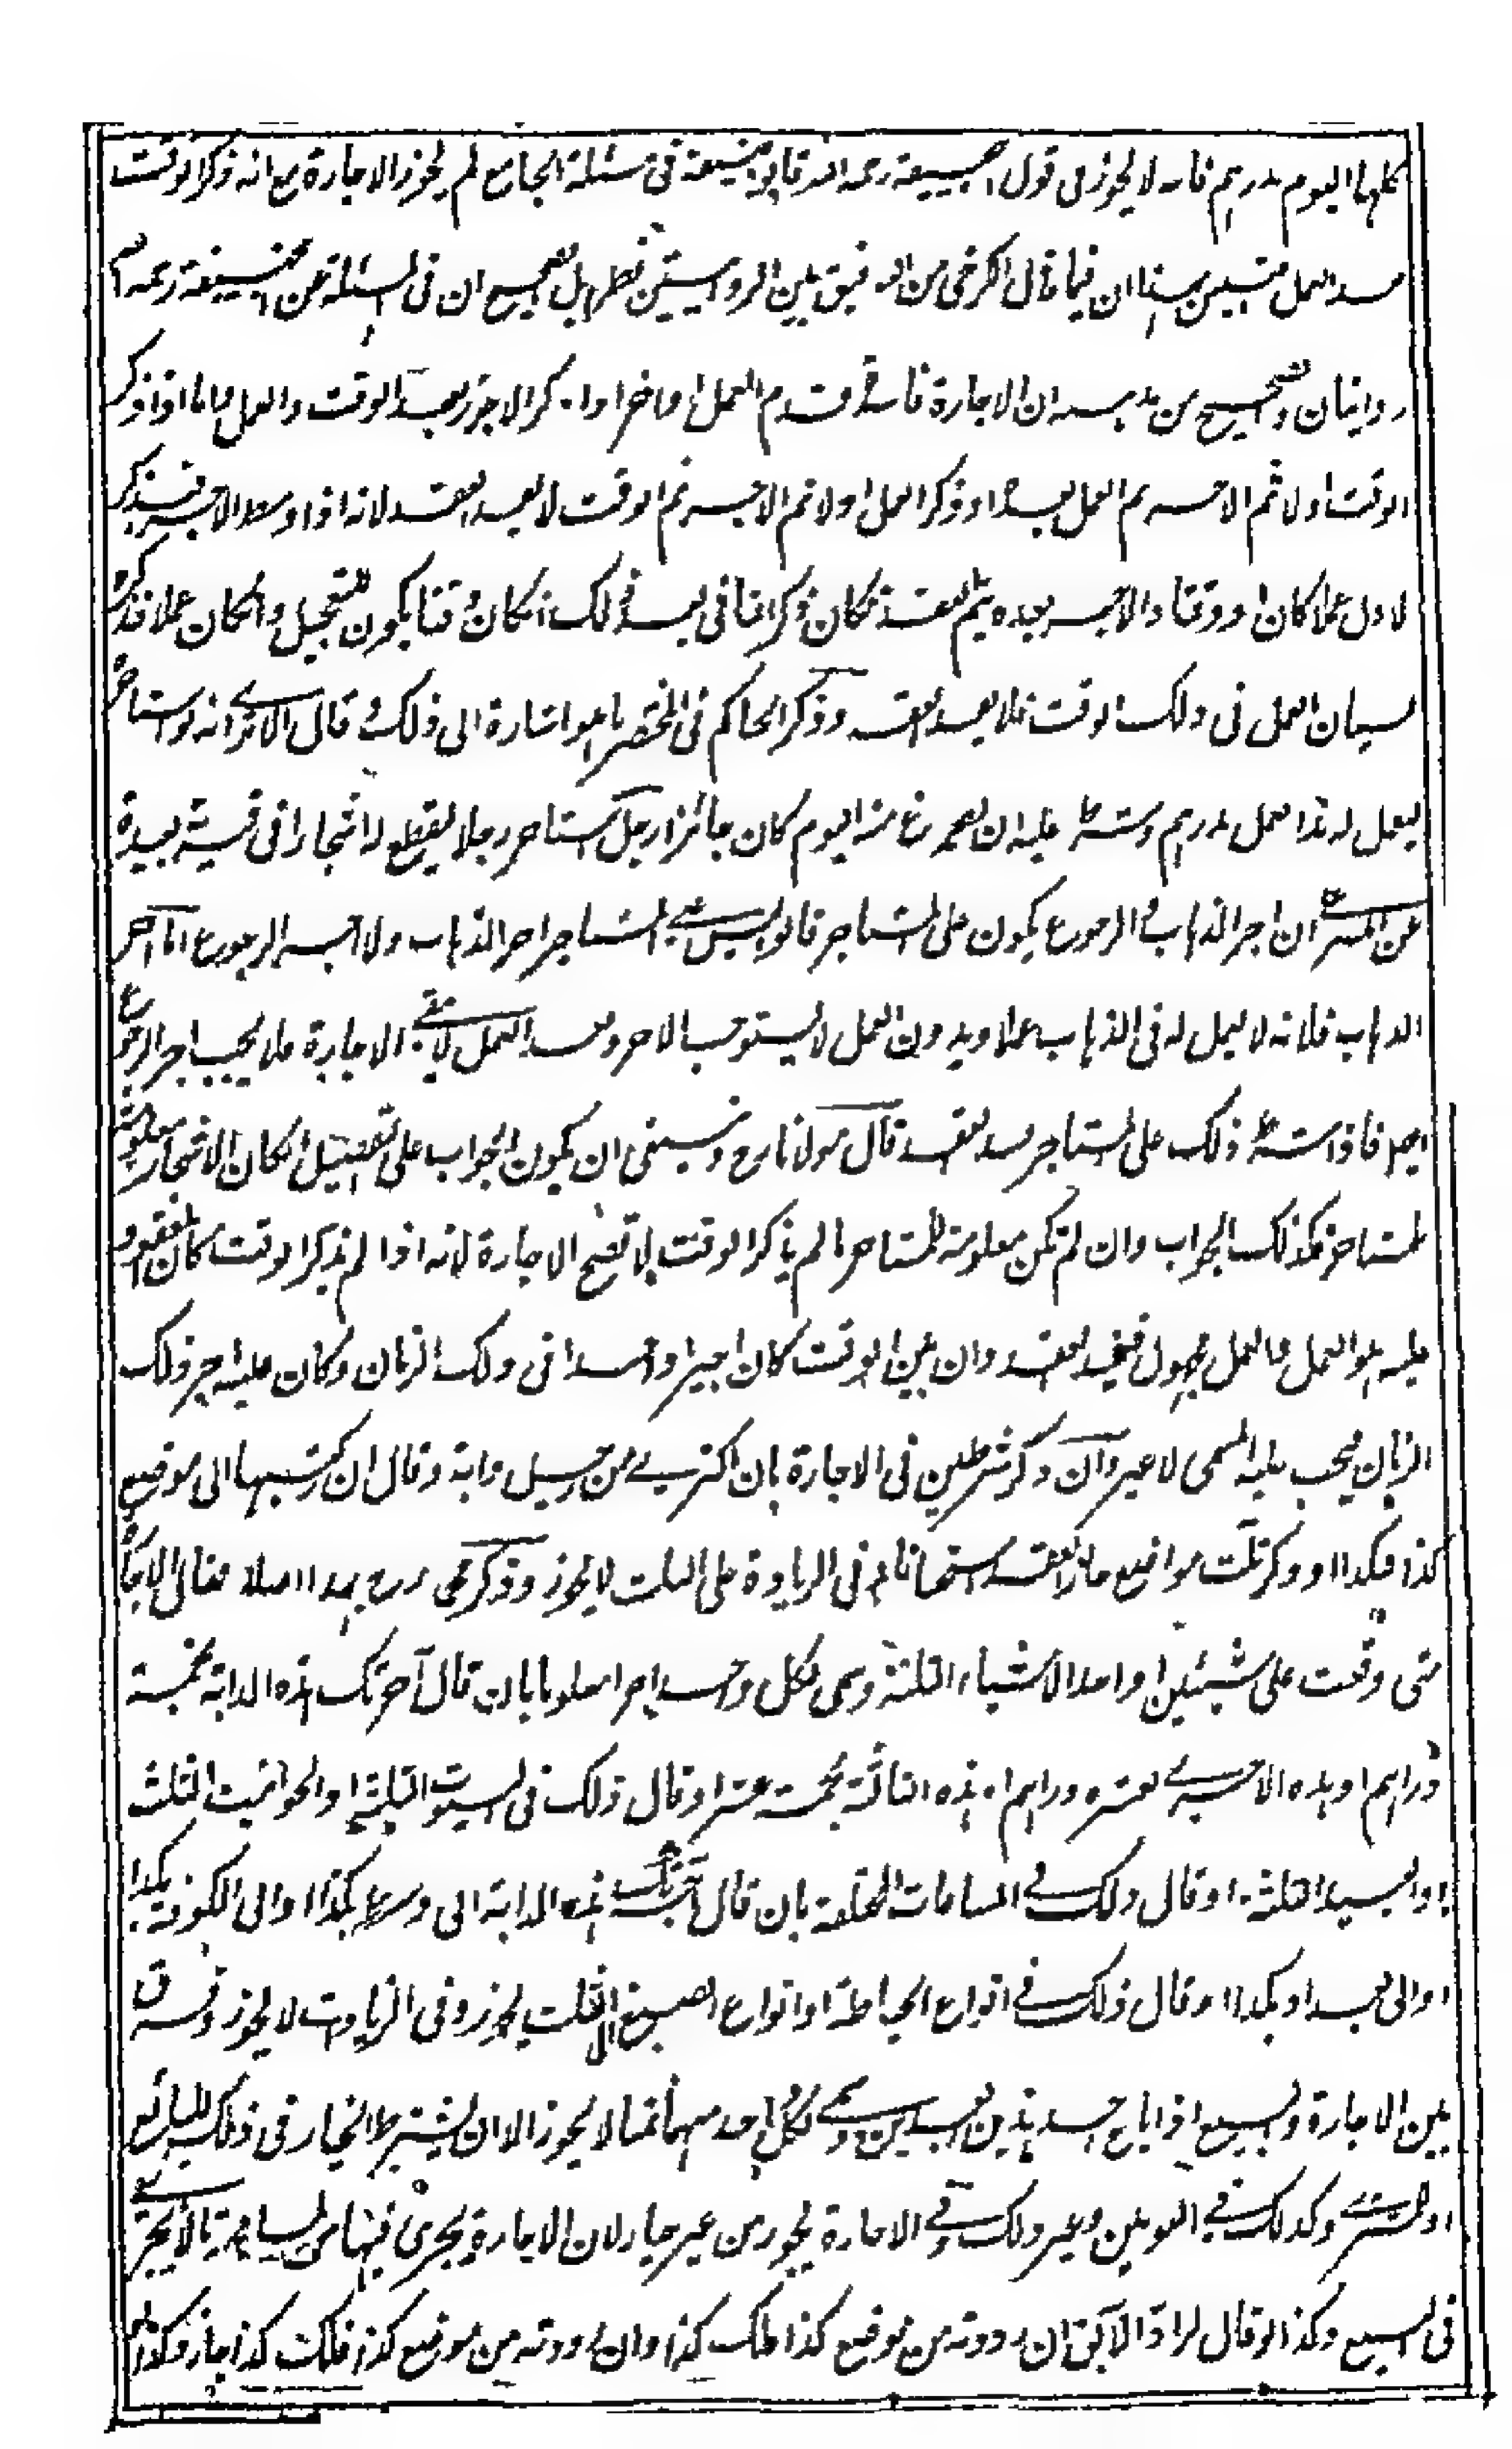 كلها اليوم بدرهم فانه لا يجوز فى قول ابيحنيفة رحمه الله فابو حنيفة فى مسئلة الجامع لم يجوز الاجارة مع انه ذكر الوقت
بعد العمل فتبين بهذا ان فيما قال الكرخى من التوفيق بين الروايتين نظر بل الصحيح ان فى المسئلة عن ابيحنيفة رحمه الله
روايتان والصحيح من مذهبه ان الاجارة فاسدة قدم العمل او اخر اذا ذكر الاجر بعد الوقت والعمل واما اذا ذكر
الوقت اولا ثم الاجر ثم العمل بعده او ذكر العمل اولا ثم الاجر ثم الوقت لا يفسد العقد لانه اذا وسط الاجر فبذكر
الاول عملا كان او وقتا والاجر بعده يتم العقد فكان ذكر الثانى بعد ذلك ان كان وقتا يكون للتعجيل وان كان عملا فذكره
لبيان العمل فى ذلك الوقت فلا يفسد العقد وذكر الحاكم فى المختصر ما هو اشارة الى ذلك قال الا ترى انه لو استاجر
ليعمل له هذا العمل بدرهم وشرط عليه ان يفرغ منه اليوم كان جائزا رجل استاجر رجلا ليقطع له اشجارا فى قرية بعيدة
عن المصر ان اجر الذهاب والرجوع يكون على المستاجر قالوا ليس على المستاجر اجر الذهاب ولا اجر الرجوع اما اجر
الذهاب فلانه لا يعمل له فى الذهاب عملا وبدون العمل لا يستوجب الاجر وبعد العمل لا تبقى الاجارة فلا يجب اجر الرجوع
ايضا فاذا شرط ذلك على المستاجر يفسد العقد قال مولانا رح وينبغى ان يكون الجواب على التفصيل ان كان الاشجار معلومة
للمستاجر فكذلك الجواب وان لم تكن معلومة للمستاجر ما لم يذكر الوقت لا تصح الاجارة لانه اذا لم يذكر الوقت كان المعقود
عليه هو العمل والعمل مجهول فيفسد العقد وان بين الوقت كان اجيرا وحدا فى ذلك الزمان وكان عليه اجر ذلك
الزمان فيجب عليه المسمى لا غير وان ذكر شرطين فى الاجارة بان اكترى من رجل دابة وقال ان ركبتها الى موضع
كذا فبكذا او ذكر ثلث مواضع جاز العقد استحسانا وفى الزيادة على الثلث لا يجوز وذكر الكرخى رح لهذا اصلا فقال الاجارة
متى وقعت على شيئين او احد الاشياء الثلثة وسمى لكل واحد اجرا معلوما بان قال آجرتك هذه الدابة بخمسة
دراهم او هذه الاخرى بعشرة دراهم او هذه الثالثة بخمسة عشر او قال ذلك فى البيوت الثلثة او الحوانيت الثلث
او العبيد الثلثة او قال ذلك فى المسافات المختلفة بان قال آجرتك هذه الدابة الى واسط بكذا او الى الكوفة بكذا
او الى بغداد بكذا او قال ذلك فى انواع الخياطة او انواع الصبغ الى الثلث يجوز وفى الزيادة لا يجوز وفرق
بين الاجارة والبيع اذا باع احد هذين العبدين وسمى لكل واحد منهما ثمنا لا يجوز الا ان يشترط الخيار فى ذلك للبائع
او للمشترى وكذلك فى الثوبين وغير ذلك وفى الاجارة يجوز من غير خيار لان الاجارة يجرى فيها من المساهلة ما لا يجرى
فى البيع وكذا لو قال لراد الآبق ان رددته من موضع كذا فلك كذا وان رددته من موضع كذا فلك كذا جاز وكذا